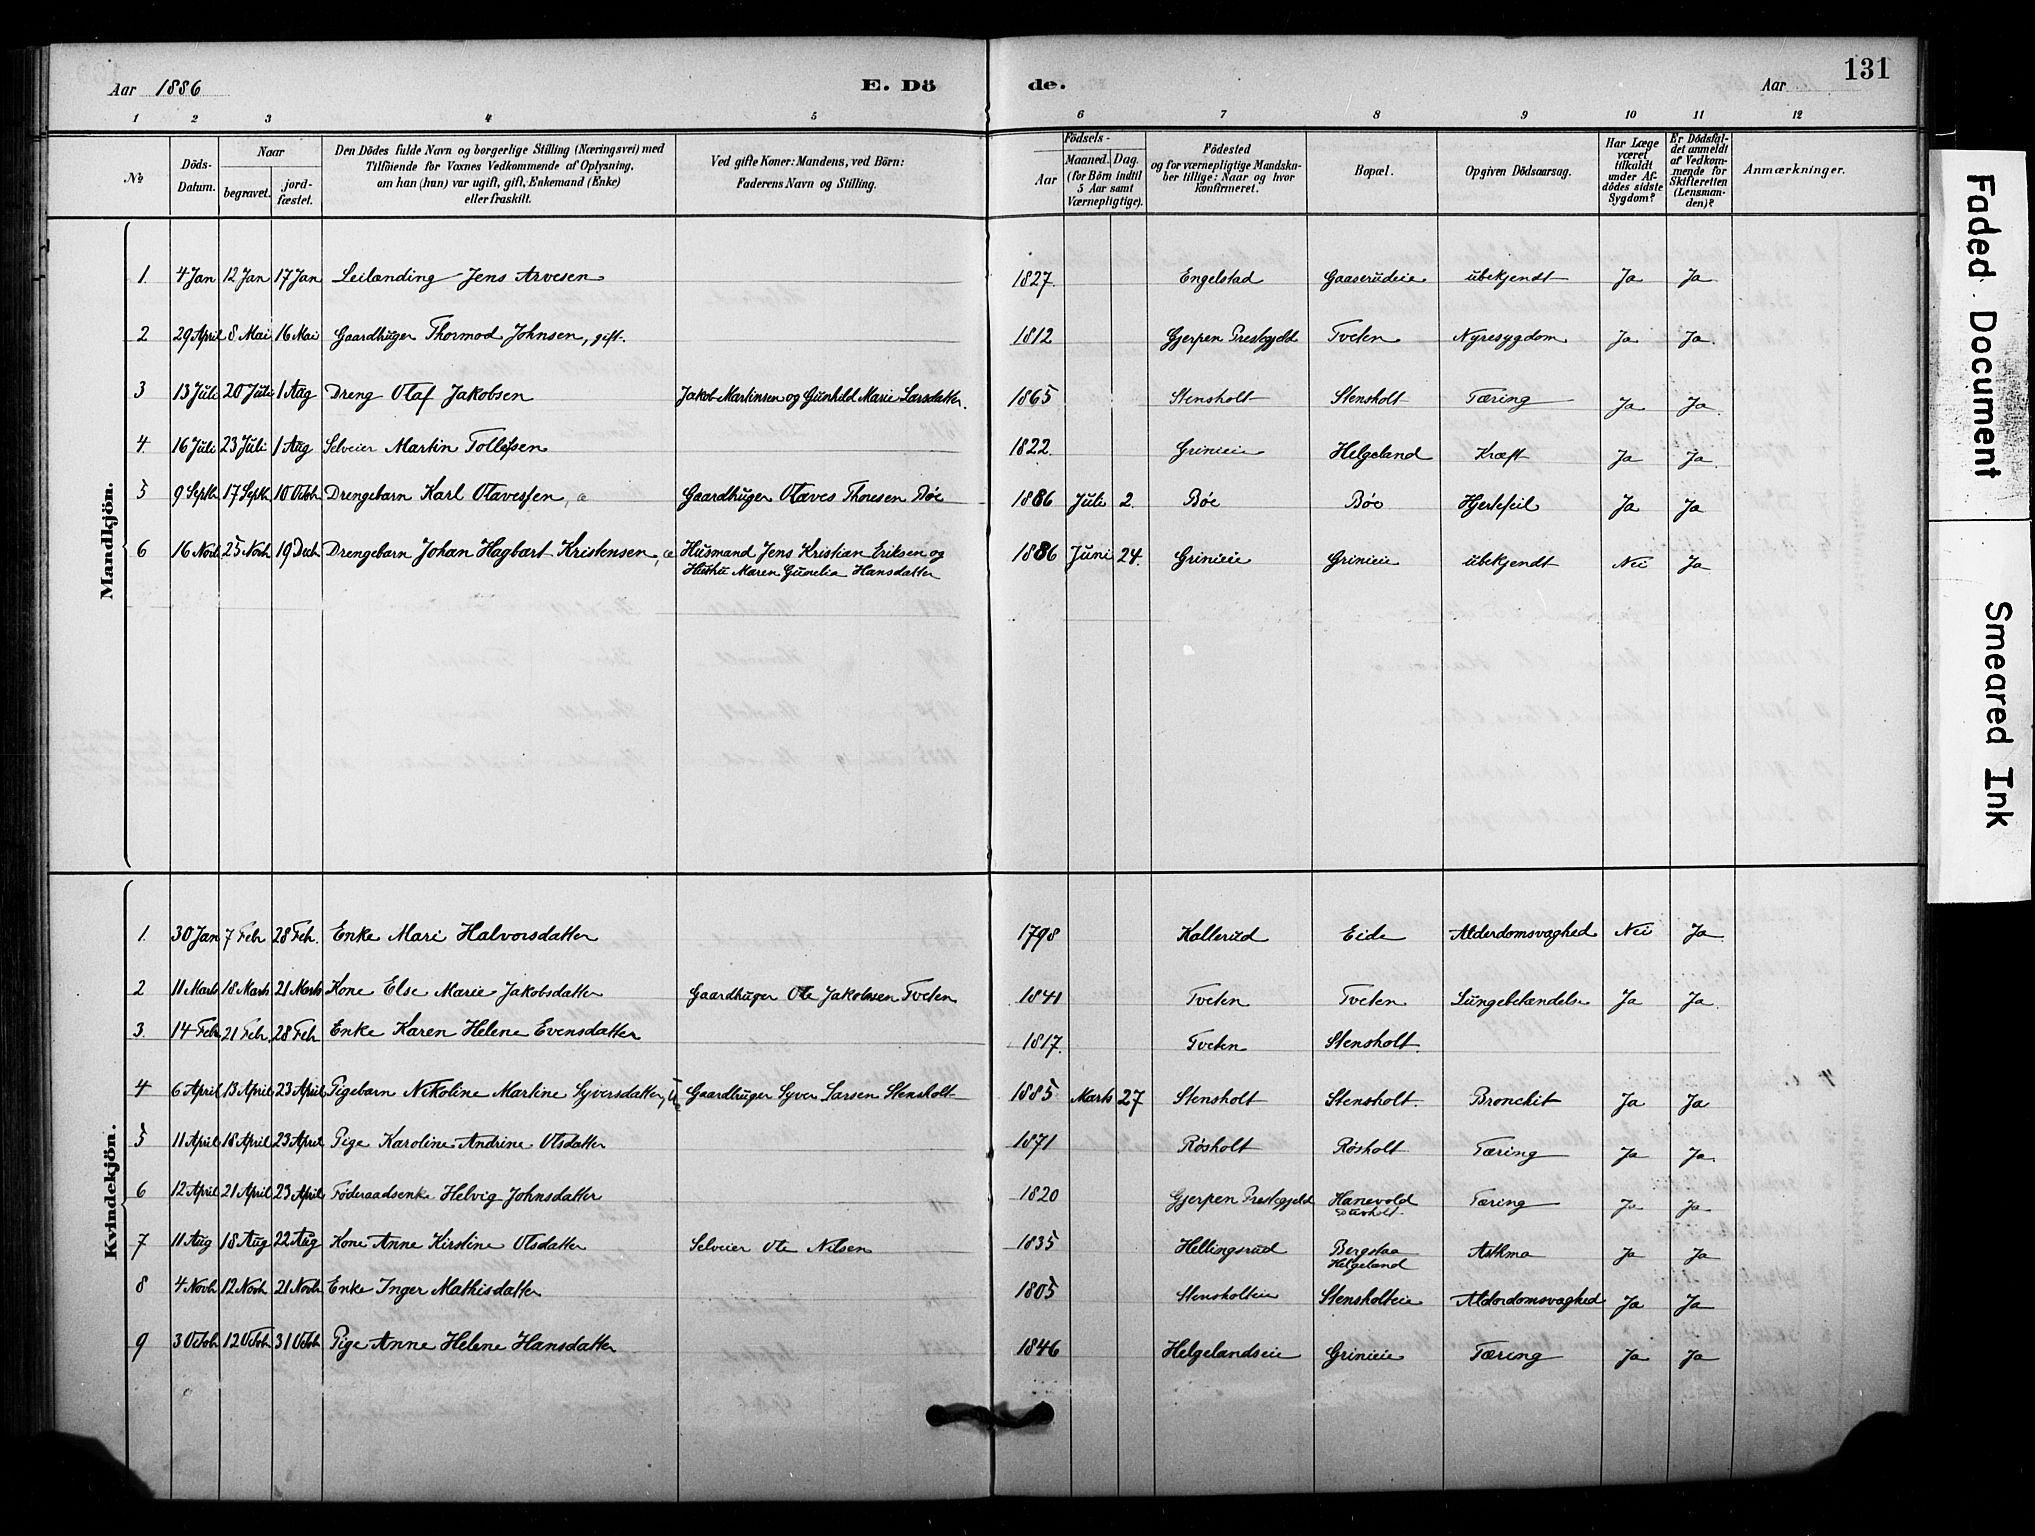 Aar 1886 E. Dö de. Aar 131
1 2 3 4 5 6 7 8 9 10 11 12
No
Döds-Datum.
Naar
begravet. jord-fæstet.
Den Dödes fulde Navn og borgerlige Stilling (Næringsvei) med
Tilföiende for Voxnes Vedkommende af Oplysning,
om han (hun) var ugift, gift, Enkemand (Enke)
eller fraskilt.
Ved gifte Koner: Mandens, ved Börn:
Faderens Navn og Stilling.
Födsels-
Aar Maaned. Dag.
(for Börn indtil
5 Aar samt
Værnepligtige).
Födested
og for værnepligtige Mandska-
ber tillige: Naar og hvor
konfirmeret.
Bopæl.
Opgiven Dödsaarsag.
Har Læge
været
tilkaldt
under Af-
dödes sidste
Sygdom?
Er Dödsfal-
det anmeldt
af Vedkom-
mende for
Skifteretten
(Lensman-
den)?
Anmærkninger.
Mandkjön.
1. 4 Jan 12 Jan 17 Jan Leilænding Jens Arvesen 1827 Engelstad Gaaserudeie ubekjendt Ja Ja
2 29 April 8 Mai 16 Mai Gaardbruger Thormod Johnsen, gift. 1812 Gjerpen Prestegjeld Tveten Nyresygdom Ja Ja
3 13 Juli 20 Juli 1 Aug Dreng Olaf Jakobsen Jakob Martinsen og Gunhild Marie Larsdatter. 1865 Stensholt Stensholt Tæring Ja Ja
4. 16 Juli 23 Juli 1 Aug Selveier Martin Tollefsen 1822. Grinieie Helgeland Kræft Ja Ja
5 9 Septb 17 Septb 10 Octob Drengebarn Karl Olavessen, Gaardbruger Olaves Thoresen Bøe 1886 Juli 2. Bøe Bøe Hjertefeil Ja Ja
6 16 Novb 25 Novb 19 Decb Drengebarn Johan Hagbart Kristensen, Husmand Jens Kristian Eriksen og
Hustru Maren Gunelia Hansdatter 1886 Juni 24. Grinieie Grinieie ubekjendt Nei Ja
Kvindekjön.
1. 30 Jan 7 Febr 28 Feb. Enke Mari Halvorsdatter 1798 Kallerud Eide Alderdomsvaghed Nei Ja
2 11 Marts 18 Marts 21 Marts Kone Else Marie Jakobsdatter Gaardbruger Ole Jakobsen Tveten 1841 Tveten Tveten Lungebetændelse Ja Ja
3. 14 Febr 21 Febr. 28 Feb Enke Karen Helene Evensdatter 1817. Tveten Stensholt.
4 6 April 13 April 23 April Pigebarn Nikoline Martine Syversdatter, Gaardbruger Syver Larsen Stensholt 1885 Marts 27 Stensholt Stensholt. Bronchit Ja Ja
5 11 April 18 April 23 April Pige Karoline Andrine Olsdatter 1871 Røsholt Røsholt Tæring Ja Ja
6 12 April 21 April 23 April Føderaadsenke Helvig Johnsdatter 1820 Gjerpen Prestegjeld Hanevold
Tæring Ja Ja
7 11 Aug 18 Aug 22 Aug Kone Anne Kirstine Olsdatter Selveier Ole Nilsen 1835 Hellingsrud Bergstaa
Helgeland Asthma Ja Ja
8 4 Novb 12 Novb 21 Novb Enke Inger Mathisdatter 1805 Stensholteie Stensholteie Alderdomsvaghed Ja Ja
9 3 Octob 12 Octob 31 Octob Pige Anne Helene Hansdatter 1846 Helgelandseie Grinieie Tæring Ja Ja
Faded Document
Smeared Ink